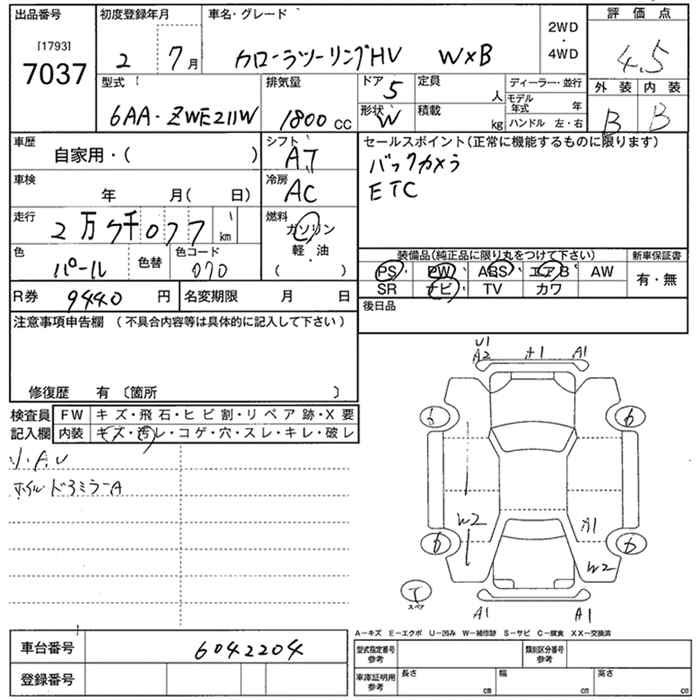 出品番号 初度登録年月 車名・グレード 評価点
[1793]
7037 2 7月 カローラツーリングHV W×B 2WD・4WD 4.5
型式 排気量 ドア 5 定員 人 ディーラー・並行 外装 内装
6AA・ZWE211W 1800 CC 形状 W 積載 kg モデル年式 年 B B
ハンドル 左・右
車歴 自家用・( ) シフト AT セールスポイント(正常に機能するものに限ります)
バックカメラ
車検 年 月( 日) 冷房 AC ETC
走行 2万7千077 km 燃料 ガソリン
軽・油
( )
色 パール 色替 色コード 070
装備品(純正品に限り丸をつけて下さい) 新車保証書
PS PW ABS エアB AW 有・無
SR ナビ TV カワ
R券 9440円 名変期限 月 日 後日品
注意事項申告欄 (不具合内容等は具体的に記入して下さい)
修復歴 有 〔箇所 〕
検査員 FW キズ・飛石・ヒビ割・リペア跡・X要
記入欄 内装 キズ・汚レ・コゲ・穴・スレ・キレ・破レ
小・A.U
ホイル ドアミラーA
U1
A2 A1
6 6
W2
6 6
W2
T
スペア
A1 A1
A−キズ E−エクボ U−凹み W−補修跡 S−サビ C−腐食 XX−交換済
車台番号 6042204
登録番号
型式指定番号 参考 類別区分番号 参考
車庫証明用 参考 長さ cm 幅 cm 高さ cm